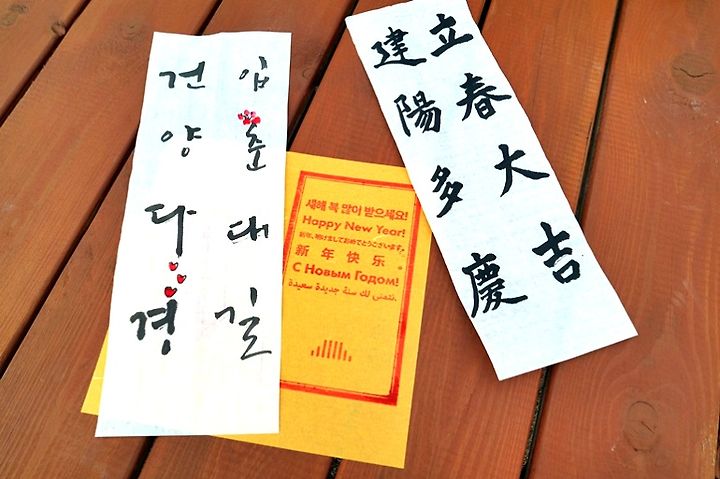 입춘대길
건양다경
새해 복 많이 받으세요!
Happy New Year!
新年、明けましておめでとうございます。
新年快乐。
С Новым Годом!
نتمنى لك سنة جديدة سعيدة.
立春大吉
建陽多慶